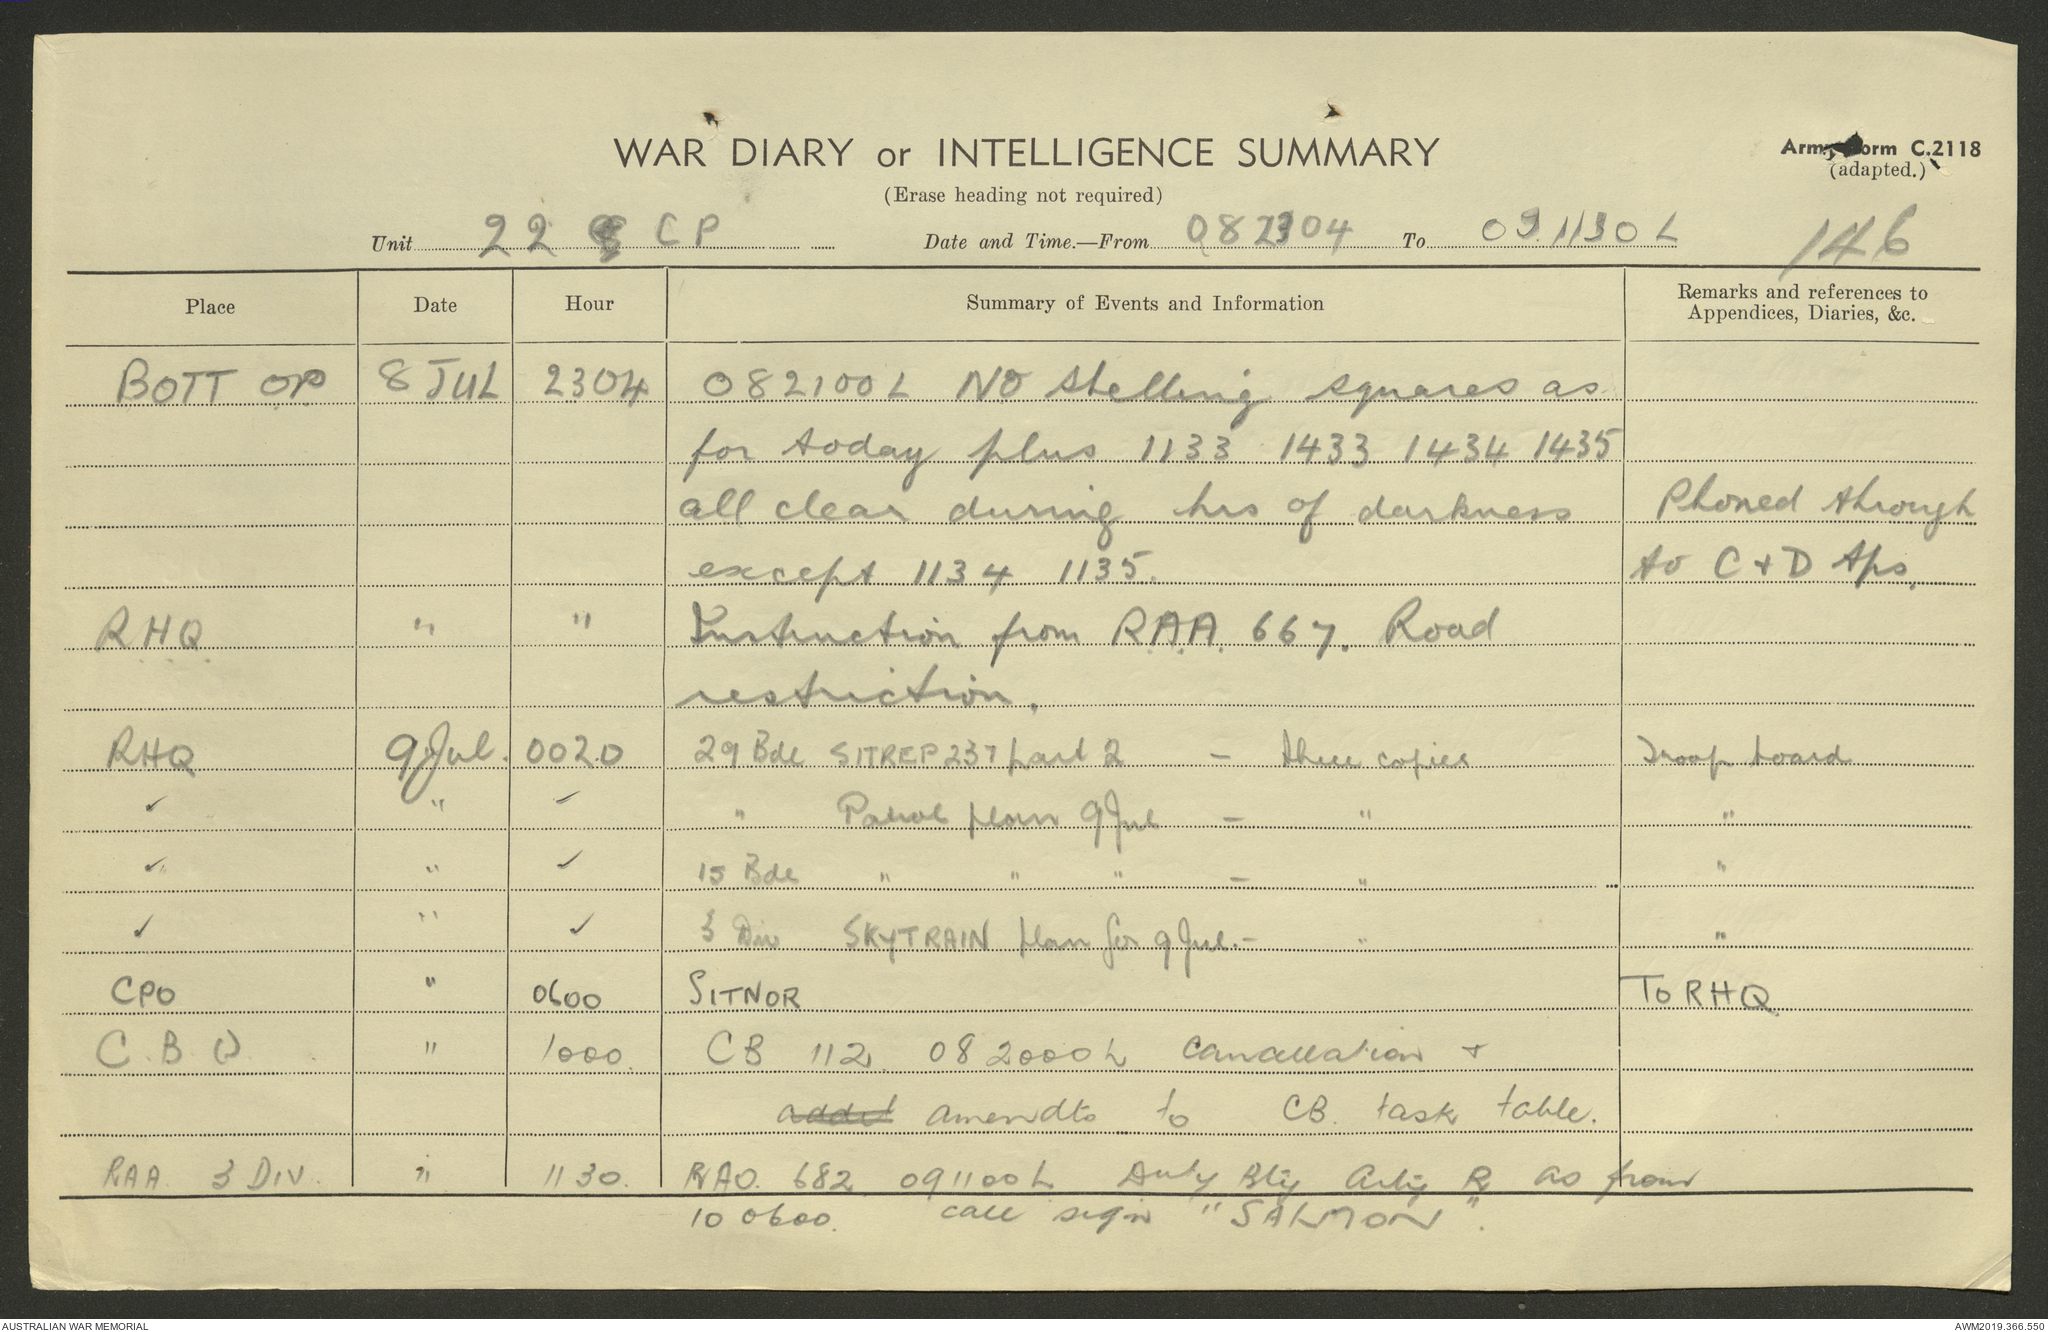 WAR DIARY or INTELLIGENCE SUMMARY
Army Form C.2118
(adapted.)
(Erase heading not required)
Unit 22 CP Date and Time.—From 082304 To 091130 L 146
Place Date Hour Summary of Events and Information Remarks and references to Appendices, Diaries, &c.
BOTT OP 8 JUL 2304 082100 L NO shelling squares as
for today plus 1133 1433 1434 1435
all clear during hrs of darkness Phoned through
except 1134 1135. to C + D Tps.
RHQ " " Instruction from R.A.A. 667. Road
restriction.
RHQ 9 Jul. 0020 29 Bde SITREP 237 part 2 — three copies Troop board
✓ " ✓ " Patrol plan 9 Jul — " "
✓ " ✓ 15 Bde " " " — " "
✓ " ✓ 3 Div SKYTRAIN plan for 9 Jul. — " "
CPO " 0600 SITNOR To RHQ
C.B.O " 1000. CB 112 082000 L Cancellation +
amendts to CB. task table.
RAA 3 DIV. " 1130. 682 091100 L Duty Bty Arty R as from
10 0600. call sign "SALMON".
AUSTRALIAN WAR MEMORIAL
AWM2019.366.550